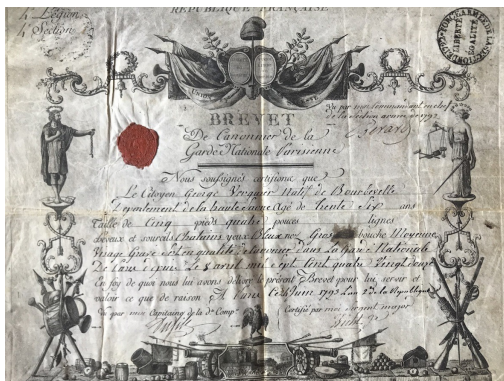 4e Légion
4 Section
RÉPUBLIQUE FRANÇAISE
LIBERTÉ
EGALITÉ
UNION
BREVET
De Canonnier de la
Garde Nationale Parisienne
Vu par mon Commandant en chef
de la section armée en 1792
Nous soussignés certifions que
Le Citoyen George Vergnier Natif de
Département de la haute Saone Agé de Trente Six ans
Taille de Cinq pieds quatre pouces lignes
cheveux et sourcils Chatains yeux Bleux nez Gros bouche Moyenne
Visage Gravé est en qualité de Canonier dans La Garde Nationale
De Paris depuis Le 8 avril mil sept cent quatre Vingt douze
En foy de quoi nous lui avons délivré le présent Brevet pour lui servir et
valoir ce que de raison A Paris ce Juin 1793 L'an 2 de la République
Vu par moi Capitaine de la de Comp.
Certifié par moi sergent major